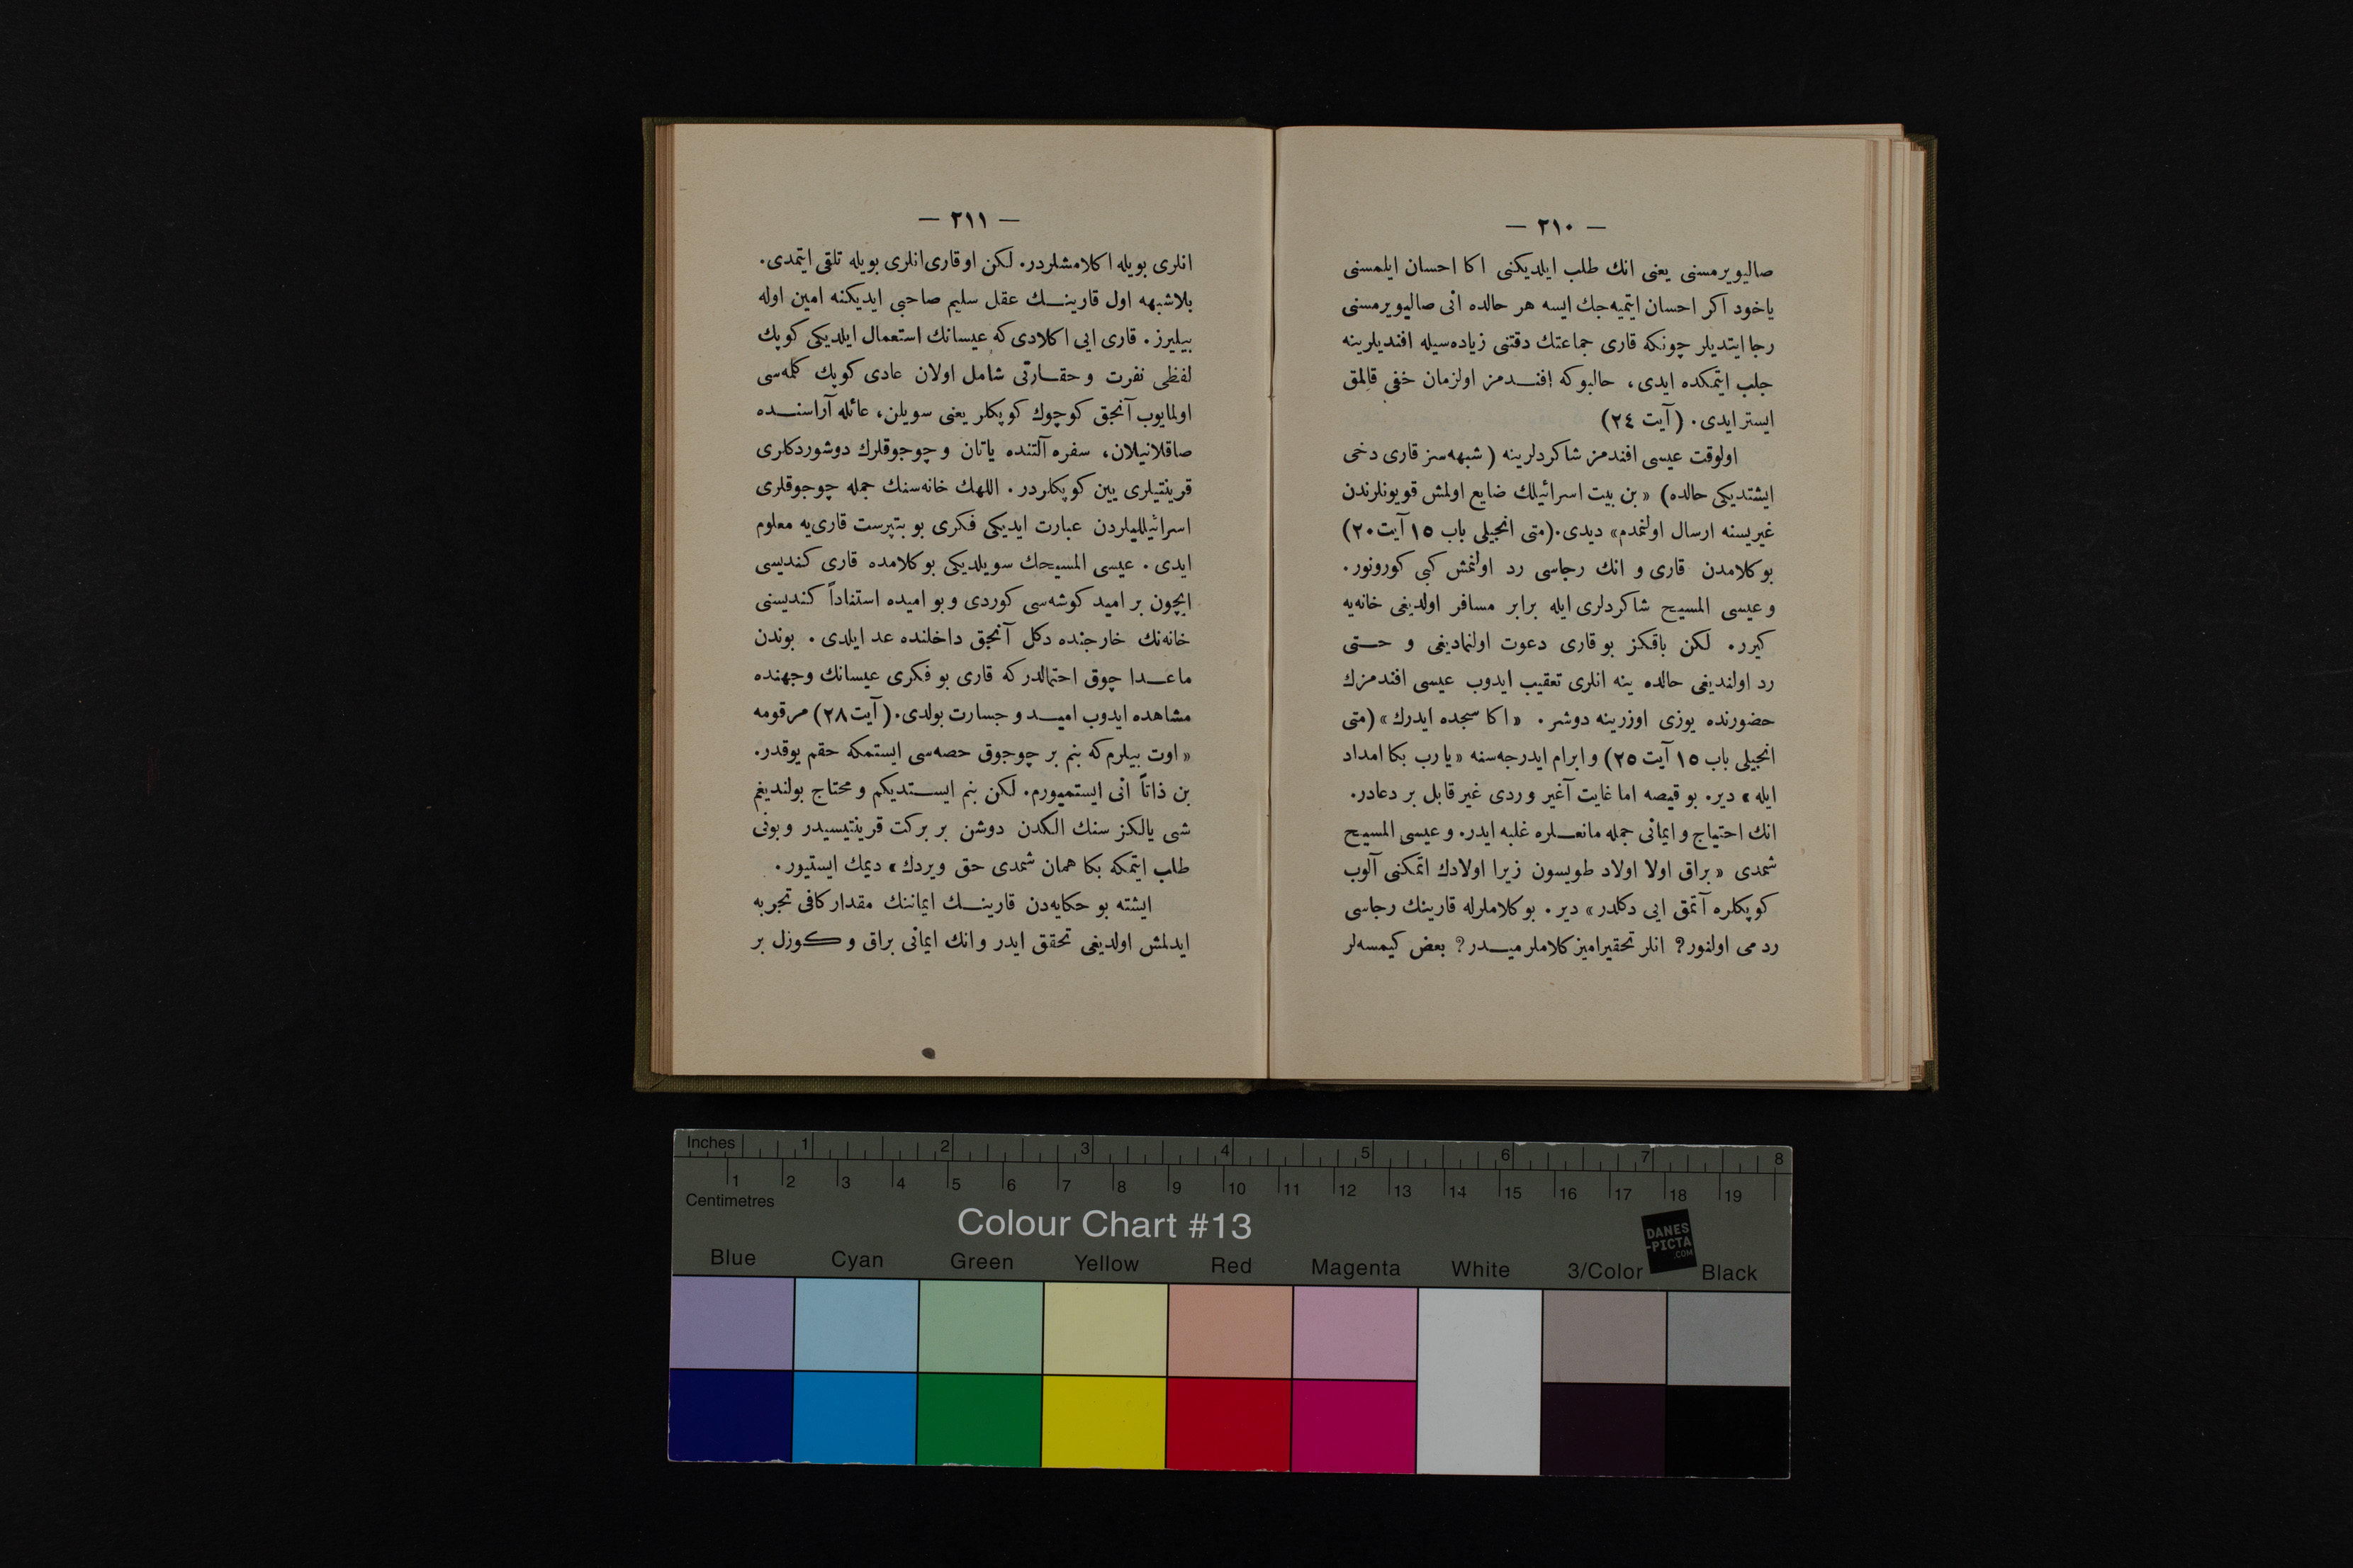 — ٢١٠ —
صاليويرمسنى يعنى انك طلب ايلديكنى اكا احسان ايلمسنى
ياخود اكر احسان ايتميه‌جك ايسه هر حالده انى صاليويرمسنى
رجا ايتديلر چونكه قارى جماعتك دقتنى زياده‌سيله افنديلرينه
جلب ايتمكده ايدى، حالبوكه افندمز اولزمان خفى قالمق
ايستر ايدى. (آيت ٢٤)
اولوقت عيسى افندمز شاكردلرينه (شبهه‌سز قارى دخى
ايشتديكى حالده) «بن بيت اسرائيلك ضايع اولمش قويونلرندن
غيريسنه ارسال اولنمدم» ديدى.(متى انجيلى باب ١٥ آيت ٢٠)
بو كلامدن قارى و انك رجاسى رد اولنمش كبى كورونور.
و عيسى المسيح شاكردلرى ايله برابر مسافر اولديغى خانه‌يه
كيرر. لكن باقكز بو قارى دعوت اولنماديغى و حتى
رد اولنديغى حالده ينه انلرى تعقيب ايدوب عيسى افندمزك
حضورنده يوزى اوزرينه دوشر. «اكا سجده ايدرك» (متى
انجيلى باب ١٥ آيت ٢٥) و ابرام ايدرجه‌سنه «يا رب بكا امداد
ايله» دير. بو قيصه اما غايت آغير و ردى غير قابل بر دعادر.
انك احتياج و ايمانى جمله مانعلره غلبه ايدر. و عيسى المسيح
شمدى «براق اولا اولاد طويسون زيرا اولادك اتمكنى آلوب
كوپكلره آتمق ايى دكلدر» دير. بو كلاملرله قارينك رجاسى
رد مى اولنور? انلر تحقيراميز كلاملر ميدر? بعض كيمسه‌لر
— ٢١١ —
انلرى بويله اكلامشلردر. لكن او قارى انلرى بويله تلقى ايتمدى.
بلاشبهه اول قارينك عقل سليم صاحبى ايديكنه امين اوله
بيليرز. قارى ايى اكلادى كه عيسانك استعمال ايلديكى كوپك
لفظى نفرت و حقارتى شامل اولان عادى كوپك كلمه‌سى
اولمايوب آنجق كوچوك كوپكلر يعنى سويلن، عائله آراسنده
صاقلانيلان، سفره آلتنده ياتان و چوجوقلرك دوشوردكلرى
قرينتيلرى يين كوپكلردر. اللهك خانه‌سنك جمله چوجوقلرى
اسرائيلليلردن عبارت ايديكى فكرى بو بتپرست قارى‌يه معلوم
ايدى. عيسى المسيحك سويلديكى بو كلامده قارى كنديسى
ايچون بر اميد كوشه‌سى كوردى و بو اميده استناداً كنديسنى
خانه‌نك خارجنده دكل آنجق داخلنده عد ايلدى. بوندن
ماعدا چوق احتمالدر كه قارى بو فكرى عيسانك وجهنده
مشاهده ايدوب اميد و جسارت بولدى.(آيت ٢٨) مرقومه
«اوت بيلرم كه بنم بر چوجوق حصه‌سى ايستمكه حقم يوقدر.
بن ذاتاً انى ايستميورم. لكن بنم ايستديكم و محتاج بولنديغم
شى يالكز سنك الكدن دوشن بر بركت قرينتيسيدر و بونى
طلب ايتمكه بكا همان شمدى حق ويردك» ديمك ايستيور.
ايشته بو حكايه‌دن قارينك ايماننك مقدار كافى تجربه
ايدلمش اولديغى تحقق ايدر و انك ايمانى براق و كوزل بر
Inches 1 2 3 4 5 6 7 8
1 2 3 4 5 6 7 8 9 10 11 12 13 14 15 16 17 18 19
Centimetres
Colour Chart #13
DANES
-PICTA
.COM
Blue Cyan Green Yellow Red Magenta White 3/Color Black